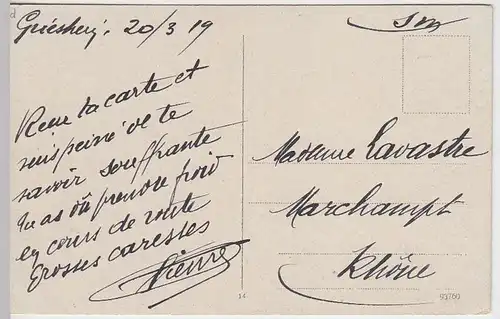 20/3 19
Reçu ta carte et
suis peiné de te
savoir souffrante
tu as dû prendre froid
en cours de route
Grosses caresses
Pierre
Madame Lavastre
Marchampt
Rhône
93760